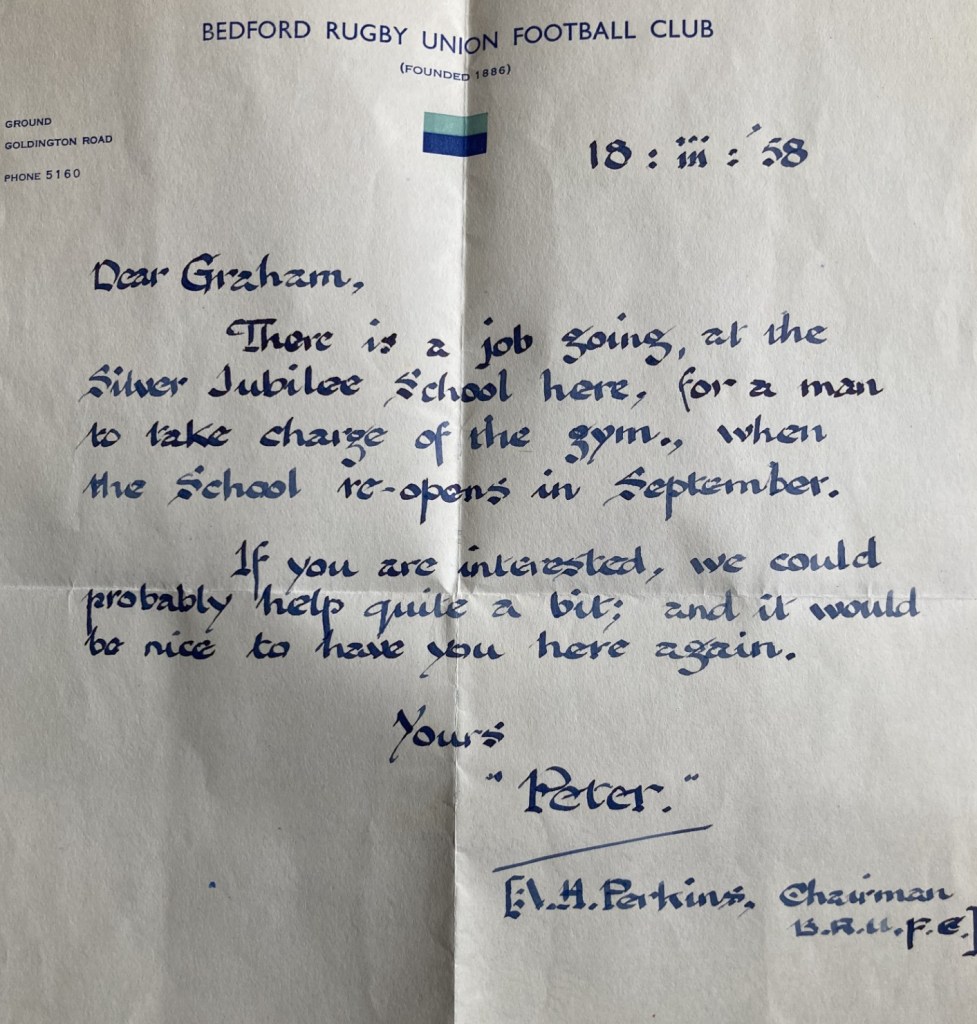 BEDFORD RUGBY UNION FOOTBALL CLUB
(FOUNDED 1886)
GROUND
GOLDINGTON ROAD
PHONE 5160
18 : iii : '58
Dear Graham,
There is a job going, at the
Silver Jubilee School here, for a man
to take charge of the gym., when
the School re-opens in September.
If you are interested, we could
probably help quite a bit; and it would
be nice to have you here again.
Yours
"Peter."
[A.H. Perkins, Chairman
B.R.U.F.C.]